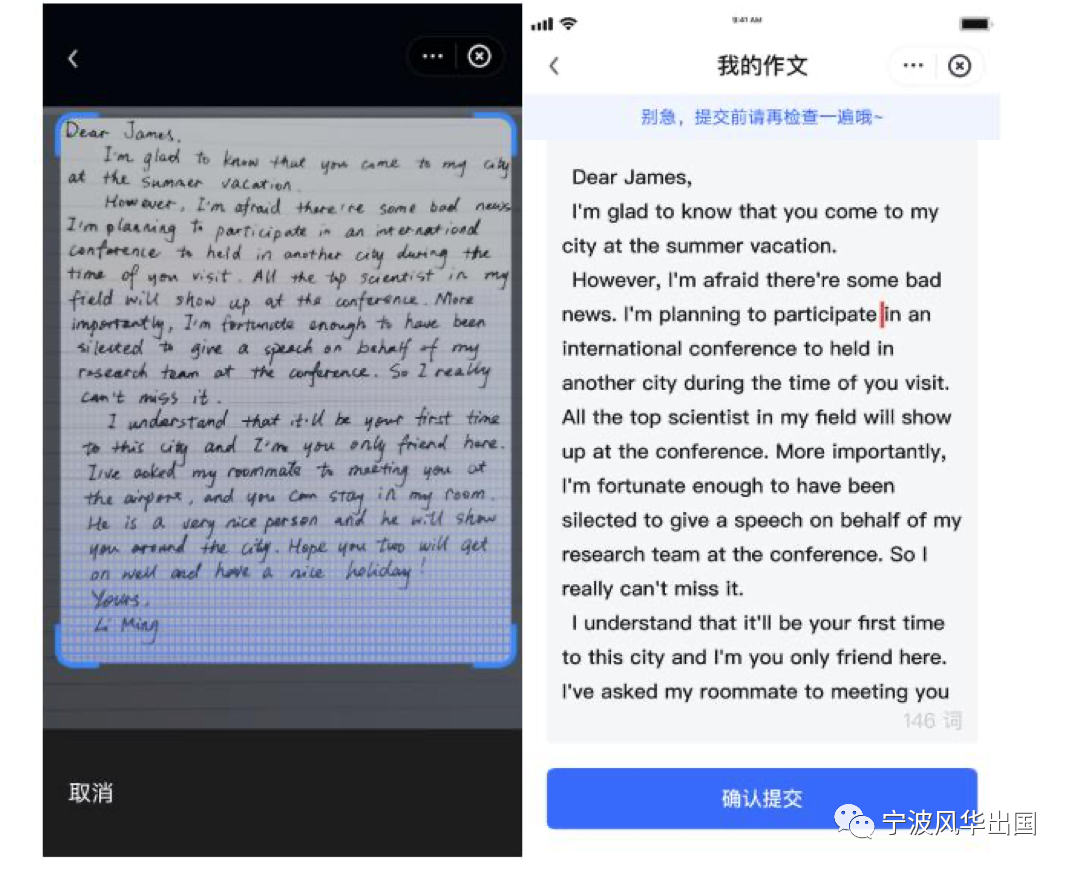 Dear James,
I'm glad to know that you come to my city
at the summer vacation.
However, I'm afraid there're some bad news
I'm planning to participate in an international
conference to held in another city during the
time of you visit. All the top scientist in my
field will show up at the conference. More
importantly, I'm fortunate enough to have been
silected to give a speech on behalf of my
research team at the conference. So I really
can't miss it.
I understand that it'll be your first time
to this city and I'm you only friend here.
I've asked my roommate to meeting you at
the airport, and you can stay in my room.
He is a very nice person and he will show
you around the city. Hope you two will get
on well and have a nice holiday!
Yours,
Li Ming
取消
9:41 AM
我的作文
别急，提交前请再检查一遍哦~
Dear James,
I'm glad to know that you come to my
city at the summer vacation.
However, I'm afraid there're some bad
news. I'm planning to participate in an
international conference to held in
another city during the time of you visit.
All the top scientist in my field will show
up at the conference. More importantly,
I'm fortunate enough to have been
silected to give a speech on behalf of my
research team at the conference. So I
really can't miss it.
I understand that it'll be your first time
to this city and I'm you only friend here.
I've asked my roommate to meeting you
146 词
确认提交
宁波风华出国